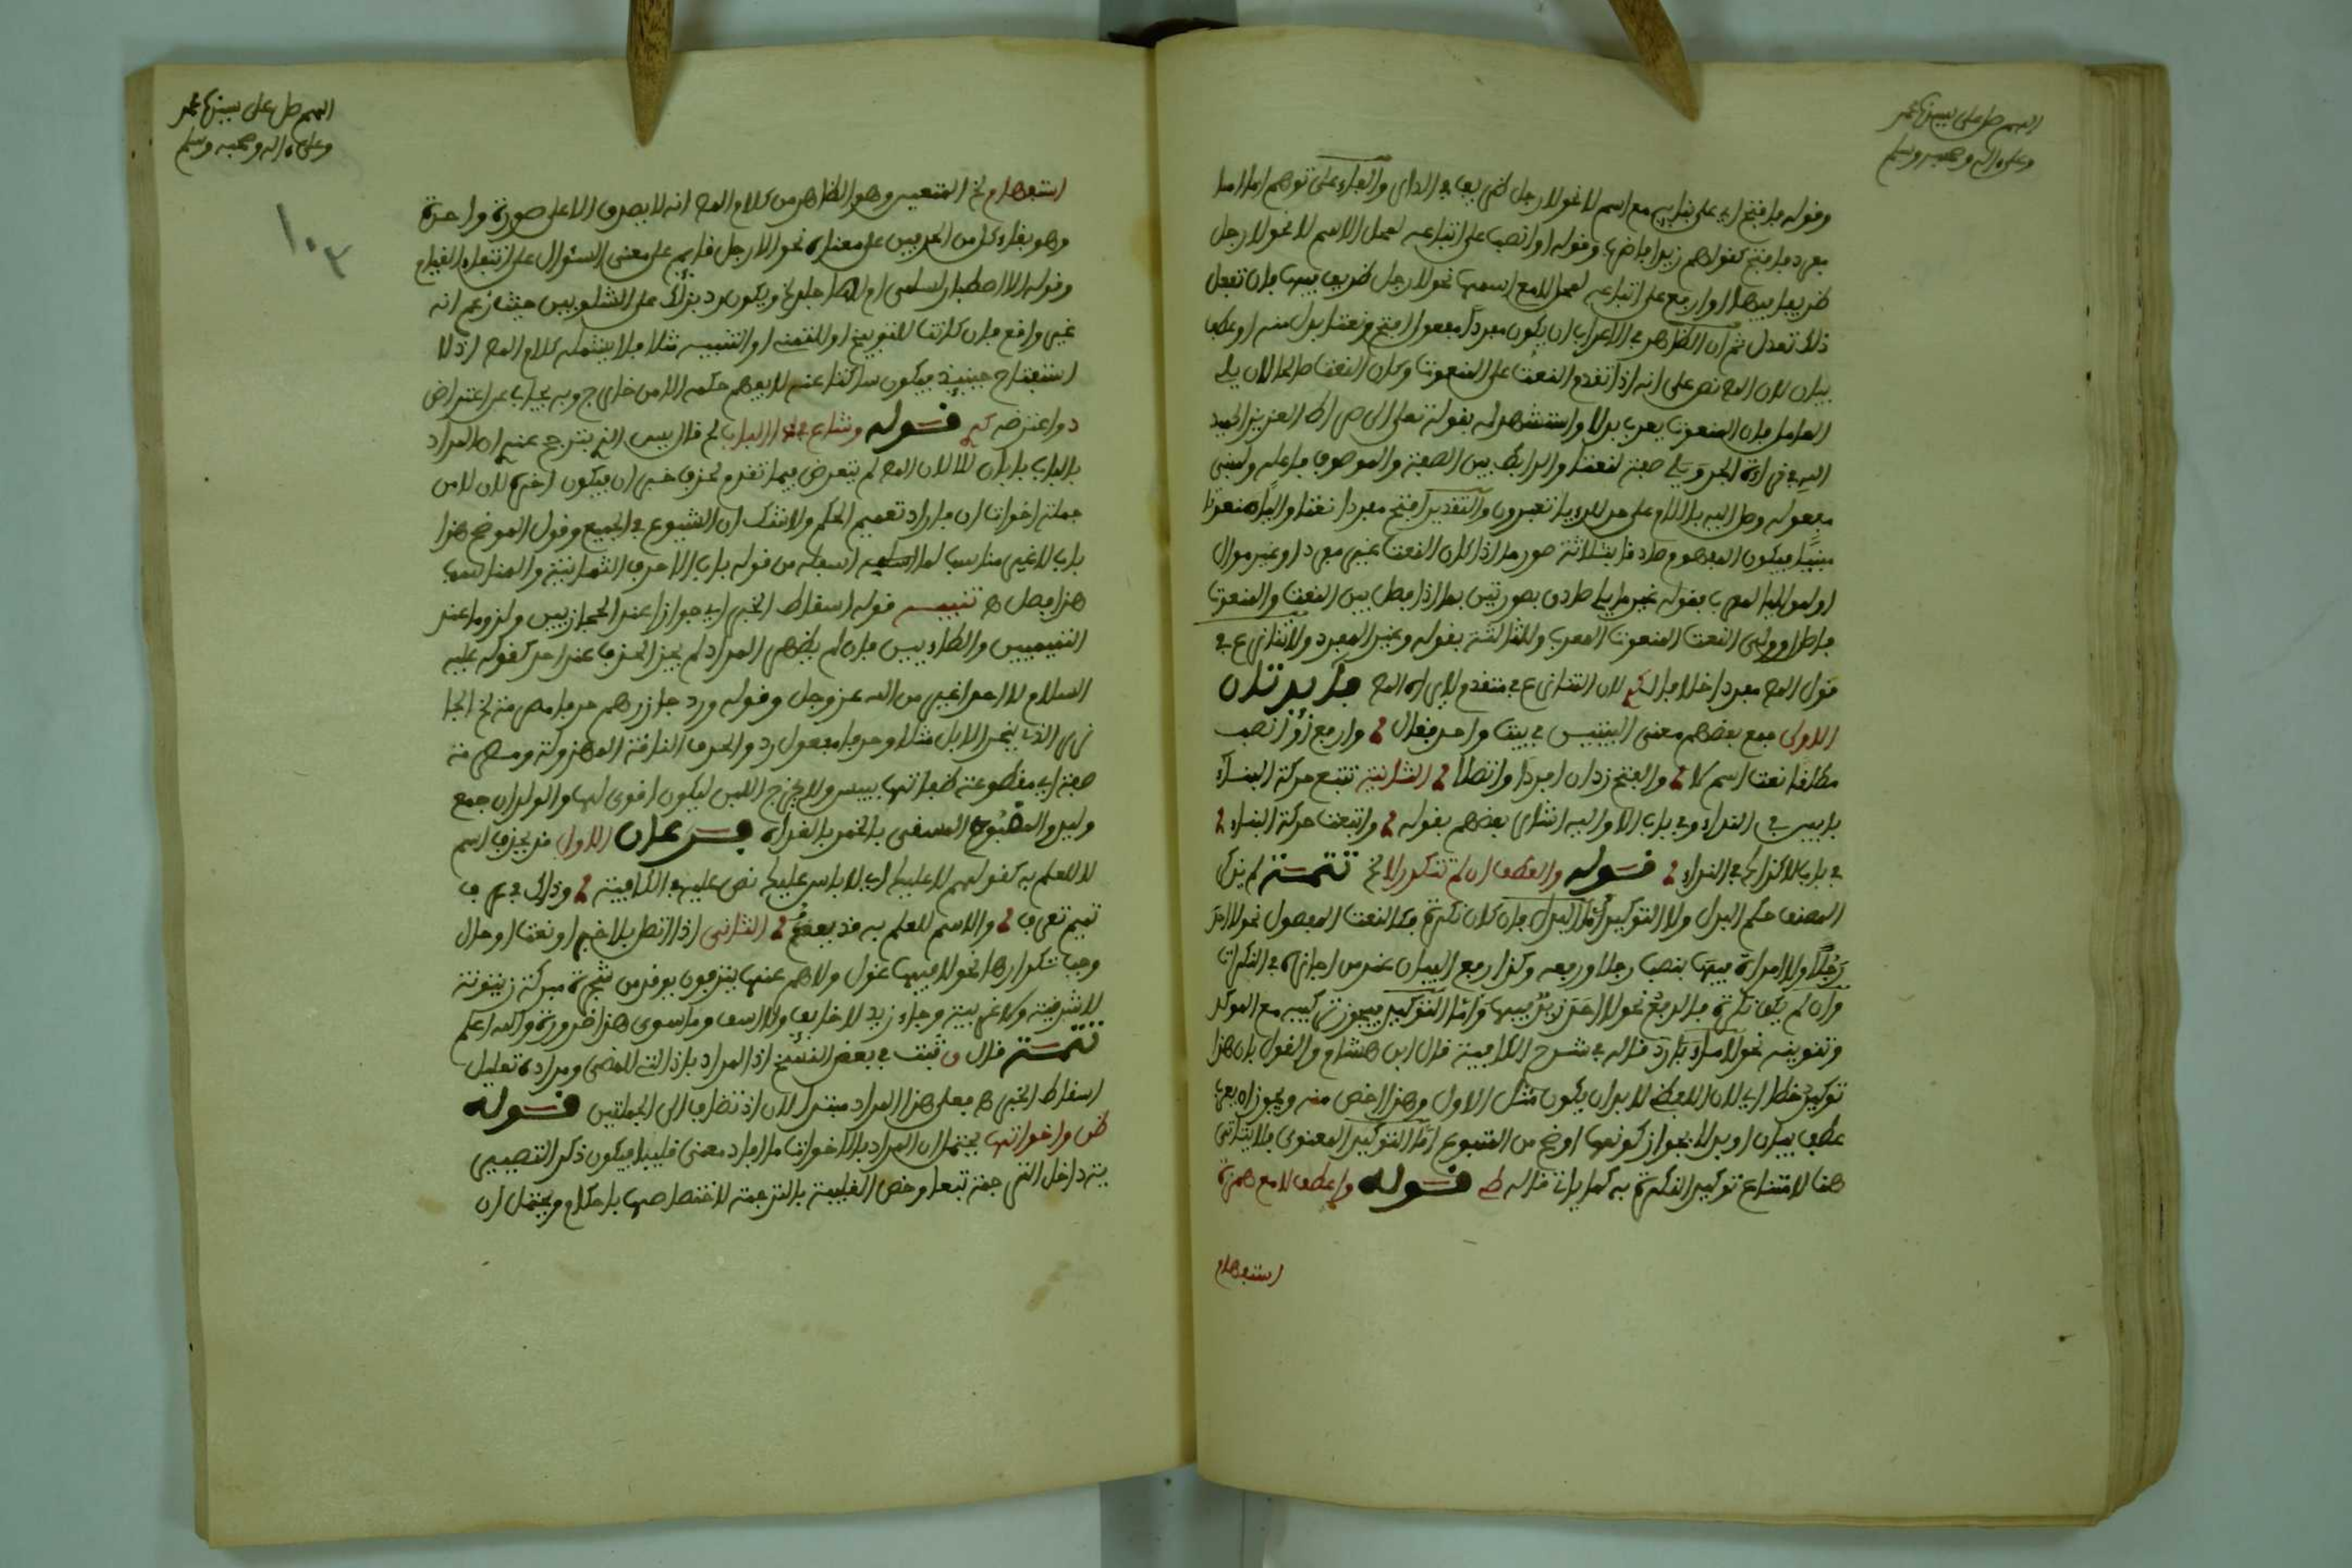 اللهم صل على سيدنا محمد
وعلى اله وصحبه وسلم
وقوله فافتح اي على بنائه مع اسم لا نحو لا رجل
مفردا فافتح كقولهم زيدا فاضرب وقوله او انصب على اتباعه لمحل الاسم لا نحو لا رجل
ظريفا فيها او ارفع على اتباعه لمحل لا مع اسمها نحو لا رجل ظريف فيها فان تفعل
ذلك تعدل ثم ان الظاهر في الاعراب ان يكون مفردا مفعول افتح ونعتا بدل منه او عطف
بيان لان المص نص على انه اذا تقدم النعت على المنعوت وكان النعت صالحا لان يلي
العامل فان المنعوت يعرب بدلا واستشهد له بقوله تعالى الى صراط العزيز الحميد
الله في قراءة الجر ويلي صفة لنعتا والرابط بين الصفة والموصوف فاعله ولمبني
مفعوله وصل اليه باللام على حد للرءيا تعبرون والتقدير افتح مفردا نعتا واليا منعوتا
مبنيا فيكون المفهوم صادقا بثلاثة صور ما اذا كان النعت غير مفرد او غير موال
او لموال لمعرب بقوله غير ما يلي صادق بصورتين ما اذا فصل بين النعت والمنعوت
فاصل او ولى النعت المنعوت المعرب وللثالثة بقوله وغير المفرد ولا تنازع في
قول المص مفردا خلافا لـ لان التنازع في متقدم لا يراه المص فايدتان
الاولى جمع بعضهم معنى البيتين في بيت واحد فقال وارفع او انصب
مطلقا نعت اسم لا والفتح زد ان افردا واتصلا الثانية تتبع حركة البناء
بابين في النداء وفي باب لا واليه اشار بعضهم بقوله واتبعت حركة البناء
في باب لا كذاك في النداء قوله والعطف ان لم تتكرر لا الخ تتمة لم يذكر
المصنف حكم البدل ولا التوكيد اما البدل فان كان نكرة فكالنعت المفصول نحو لا احد
رجلا ولا امراة فيها بنصب رجلا ورفعه وكذا رفع البيان عند من اجازه في النكرات
وان لم يكن نكرة فالرفع نحو لا احد زيد فيها واما التوكيد فيجوز تركيبه مع الموكد
وتنوينه نحو لا ماء ماء باردا قاله في شرح الكافية قال ابن هشام والقول بان هذا
توكيد خطا اي لان اللفظي لابد ان يكون مثل الاول وهذا اخص منه ويجوز ان يعرب
عطف بيان او بدلا لجواز كونهما اوضح من المتبوع اما التوكيد المعنوي فلا ياتي
هنا لامتناع توكيد النكرة به كما ياتي قاله قوله واعط لا مع همزة
استفهام
اللهم صل على سيدنا محمد
وعلى اله وصحبه وسلم
١٠٢
استفهام الخ وهو الظاهر من كلام المص انه لا يصدق الا على صورة واحدة
وهو بقاء كل من الحرفين على معناه نحو الا رجل قايم على معنى السؤال على انتفاء القيام
وقوله الا اصطبار لسلمى ام لها جلد الخ ويكون رد بذلك على الشلوبين حيث زعم انه
غير واقع فان كانت للتوبيخ او للتمني او التنبيه مثلا فلا يشمله كلام المص اذ لا
استفتاح حينيذ فيكون ساكتا عنه لا يفهم حكمه الا من خارج وبه يجاب عن اعتراض
د واعترضه قوله وشاع في ذا الباب الخ قال يس الذي يترجح عندي ان المراد
بالباب باب لا لان المص لم يتعرض فيما تقدم لحذف خبر ان فيكون اخره لان لا من
جملة اخوات ان فاراد تعميم الحكم ولا شك ان الشيوع في الجميع وقول الموضح هذا
باب لا غير مناسب لما اسلفه من قوله باب الاحرف الثمانية والمناسب
هذا فصل تنبيه قوله اسقاط الخبر اي جوازا عند الحجازيين ولزوما عند
التميميين والطاءيين فان لم يظهر المراد لم يجز الحذف عند احد كقوله عليه
السلام لا احد اغير من الله عز وجل وقوله ورد جازرهم حرفا مصرمة الخ الجا
زر الذي ينحر الابل مثلا وحرفا مفعول رد والحرف الناقة المهزولة ومصرمة
صفة اي مقطوعة طبعاتها بيبس ولا يخرج اللبن ليكون اقوى لها والولدان جمع
وليد والمصبوح المسقي بالخمر بالغداة فرعان الاول قد يحذف اسم
لا للعلم به كقولهم لا عليك اي لا باس عليك نص عليه في الكافية وذاك في عرف
تميم تعرف والاسم للعلم به قد يعرف الثاني اذا اتصل بلا خبر او نعت او حال
وجب تكرارها نحو لا فيها غول ولا هم عنها ينزفون يوقد من شجرة مباركة زيتونة
لا شرقية ولا غربية وجاء زيد لا خايفا ولا اسفا وما سوى هذا ضرورة والله اعلم
تتمة قال ثبت في بعض النسخ اذا المراد باذ التي للمضي ومراده تعليل
اسقاط الخبر فعلى هذا المراد مبتدا لان اذ تضاف الى الجملتين قوله
ظن واخواتها يحتمل ان المراد بالاخوات ما افاد معنى قلبيا فيكون ذكر التصيير
ية داخل الترجمة تبعا وخص القلبية بالترجمة لاختصاصها باحكام ويحتمل ان